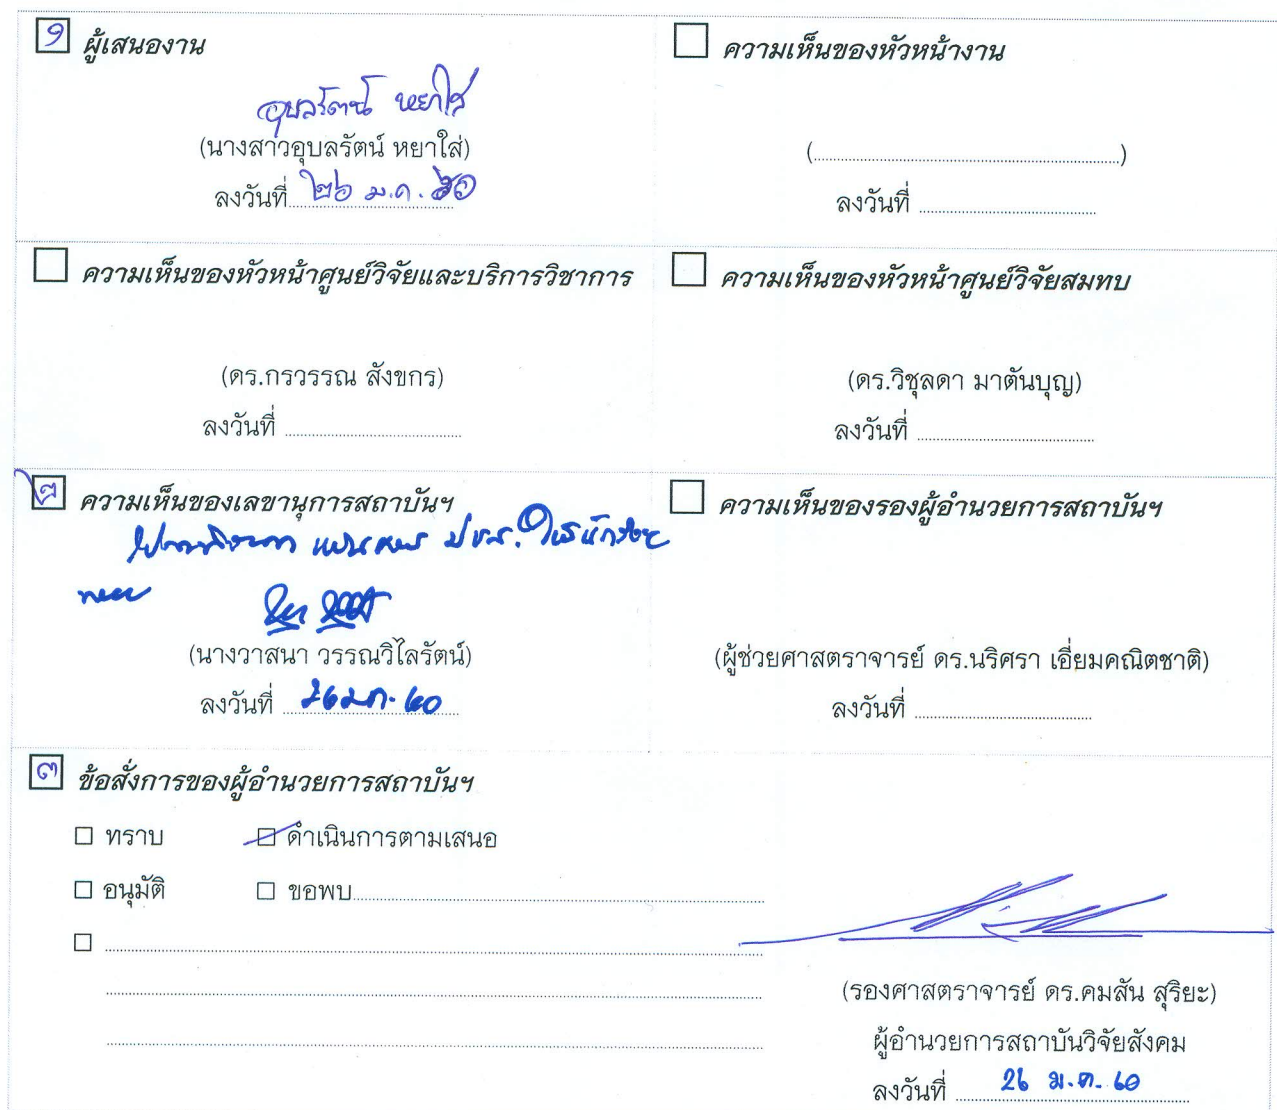 ๑ ผู้เสนองาน
อุบลรัตน์ หยาใส่
(นางสาวอุบลรัตน์ หยาใส่)
ลงวันที่ ๒๖ ม.ค. ๖๐
ความเห็นของหัวหน้างาน
(........................................)
ลงวันที่ ........................
ความเห็นของหัวหน้าศูนย์วิจัยและบริการวิชาการ
(ดร.กรวรรณ สังขกร)
ลงวันที่ ........................
ความเห็นของหัวหน้าศูนย์วิจัยสมทบ
(ดร.วิชุลดา มาตันบุญ)
ลงวันที่ ........................
๒ ความเห็นของเลขานุการสถาบันฯ
(นางวาสนา วรรณวิไลรัตน์)
ลงวันที่ 26 ม.ค. 60
ความเห็นของรองผู้อำนวยการสถาบันฯ
(ผู้ช่วยศาสตราจารย์ ดร.นริศรา เอี่ยมคณิตชาติ)
ลงวันที่ ........................
๓ ข้อสั่งการของผู้อำนวยการสถาบันฯ
ทราบ ดำเนินการตามเสนอ
อนุมัติ ขอพบ........................
(รองศาสตราจารย์ ดร.คมสัน สุริยะ)
ผู้อำนวยการสถาบันวิจัยสังคม
ลงวันที่ 26 ม.ค. 60